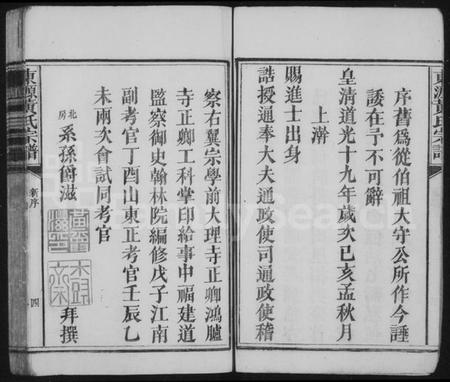 東源黃氏宗譜
序舊爲從伯祖大守公所作今諈
諉在予不可辭
皇清道光十九年歲次己亥孟秋月
上澣
賜進士出身
誥授通奉大夫通政使司通政使稽
察右翼宗學前大理寺正卿鴻臚
寺正卿工科掌印給事中福建道
監察御史翰林院編修戊子江南
副考官丁酉山東正考官壬辰乙
未兩次會試同考官
北房 系孫爵滋 拜撰
東源黃氏宗譜 新序 四
FamilySearch